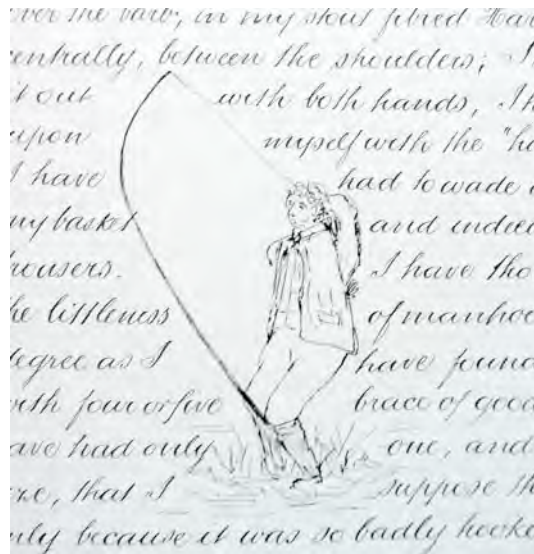 over the barb; in my stout fibred Har
centrally, between the shoulders; I
it out with both hands, I h
upon myself with the "ho
I have had to wade
my basket and indeed
trousers. I have tho
he littleness of manhoo
degree as I have found
with four or five brace of good
ave had only one, and
ore, that I suppose th
nly because it was so badly hooke